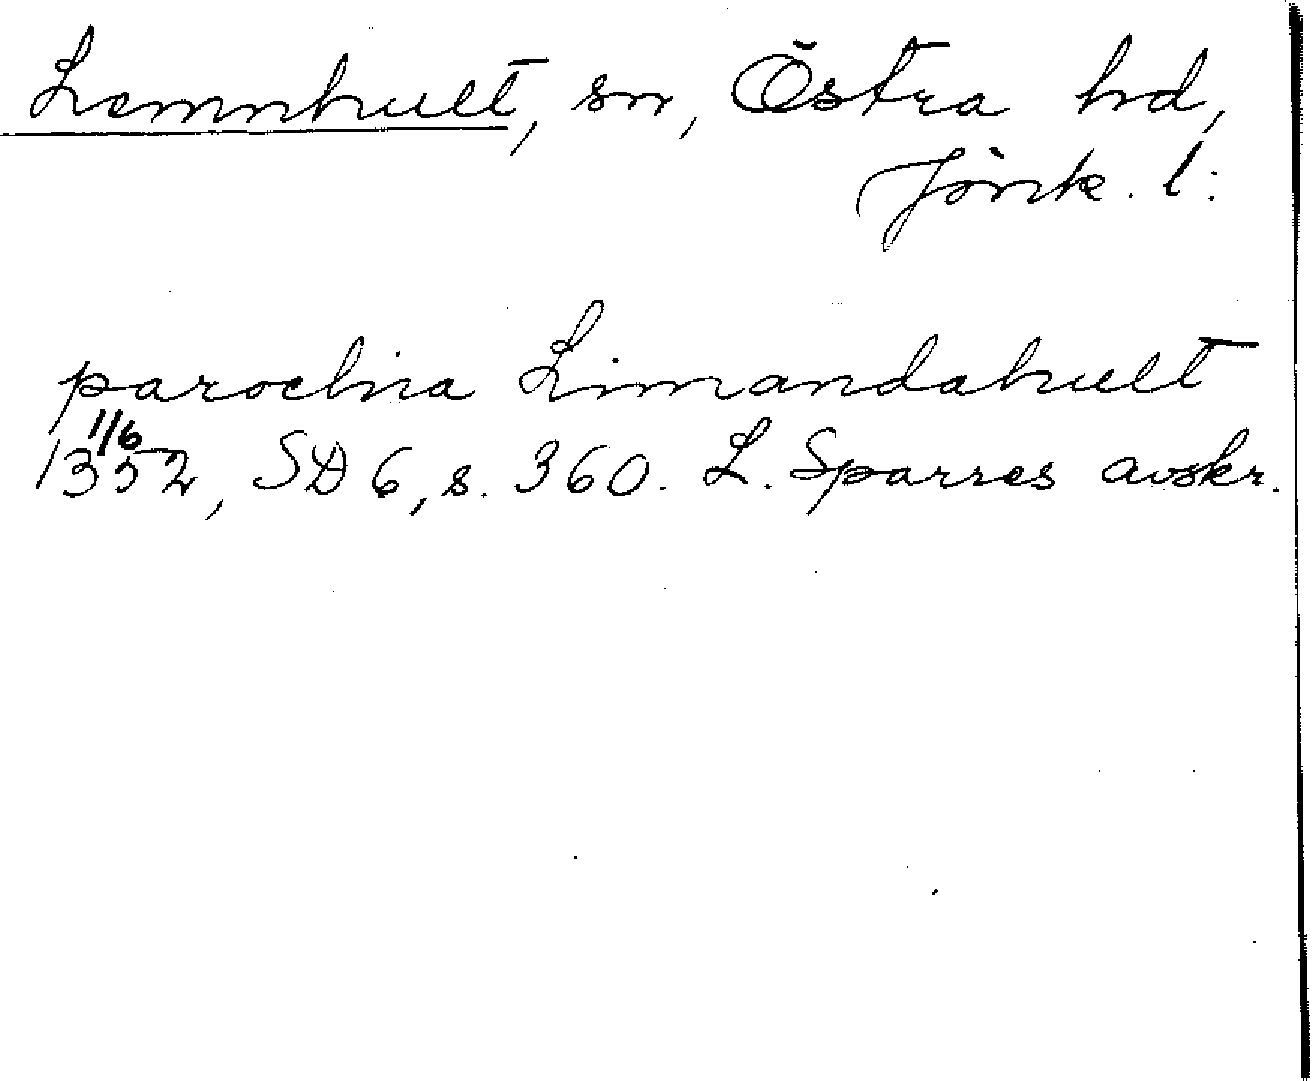 Lemnhult, sn, Östra hd,
Jönk. l:
parochia Limandahult
1/6
1352, SD 6, s. 360. L. Sparres avskr.